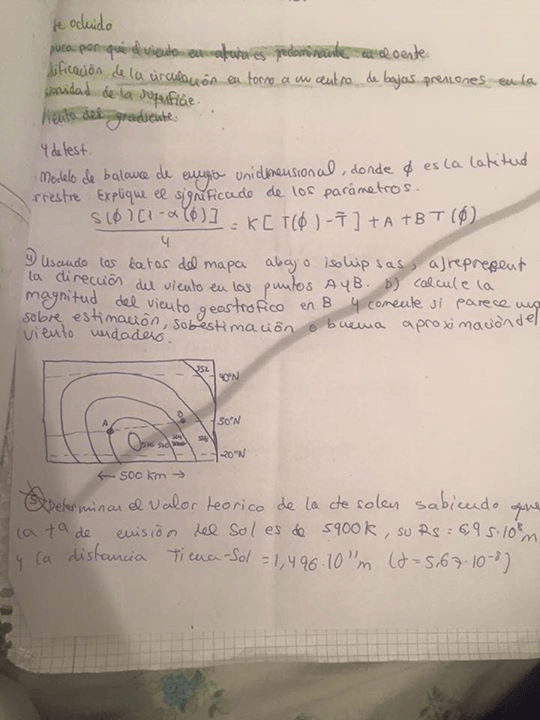 te ocluido
por qué el viento en altura es predominante en el oeste.
dificación de la circulación en torno a un centro de bajas presiones en la
de la superficie.
viento del gradiente.
4 de test.
Modelo de balance de energía unidimensional, donde ϕ es la latitud
rrestre. Explique el significado de los parámetros.
S(ϕ)[1-α(ϕ)]/4 = K[T(ϕ)-T̄]+A+BT(ϕ)
4) Usando los datos del mapa abajo isohipsas, a) represent
la dirección del viento en los puntos A y B. b) calcule la
magnitud del viento geostrofico en B y comente si parece una
sobre estimación, sobestimación o buena aproximación del
viento verdadero.
552
40ºN
A
B
50ºN
-20ºN
← 500 km →
5) Determinar el valor teorico de la cte solar sabiendo que
la tª de emisión del Sol es de 5900K, su Rs = 6,95·10⁸m
y la distancia Tierra-Sol = 1,496·10¹¹m (σ=5,67·10⁻⁸)